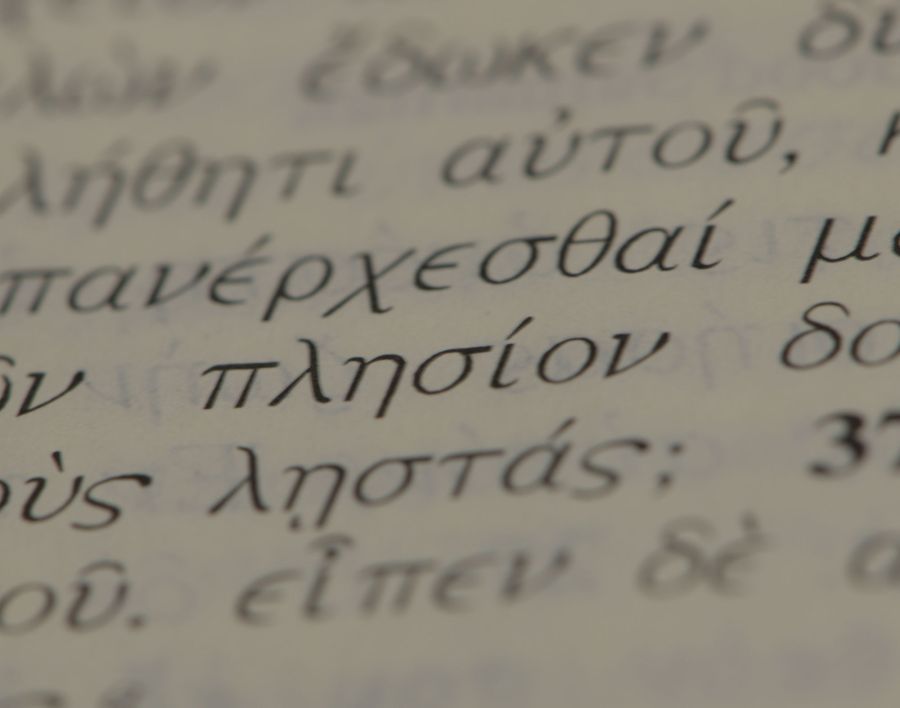 λὼν ἔδωκεν δύ
λήθητι αὐτοῦ,
πανέρχεσθαί με
ῦν πλησίον δο
οὺς λῃστάς; 37
οῦ. εἶπεν δὲ